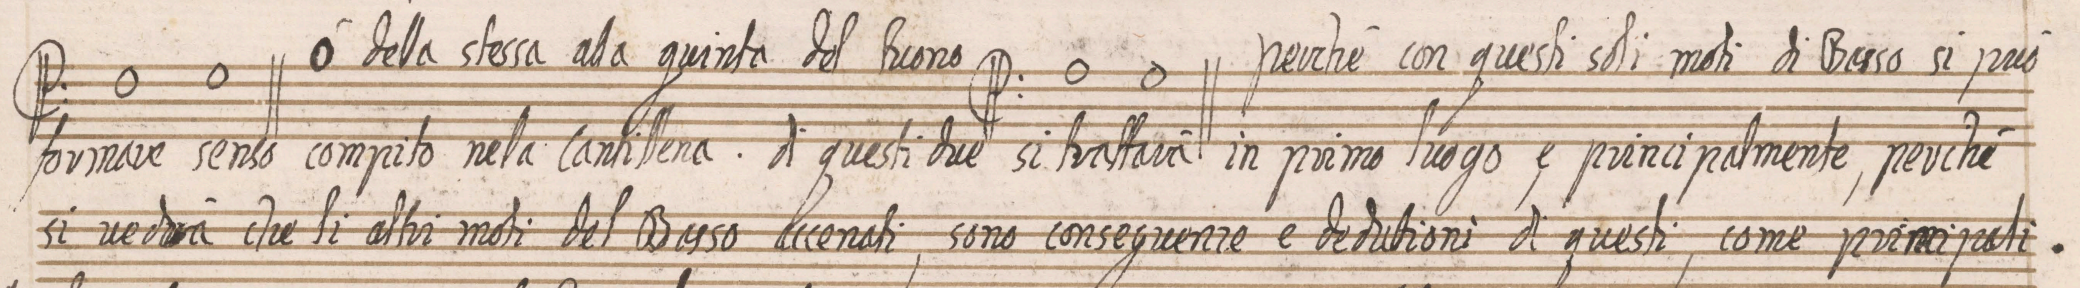 ò della stessa alla quinta del tuono perchè con questi soli moti di Basso si può
formare senso compito nela Cantillena. di questi due si trattarà in primo luogo, e principalmente, perchè
si vedrà che li altri moti del Basso accenati, sono conseguenze e dedutioni di questi, come principali.